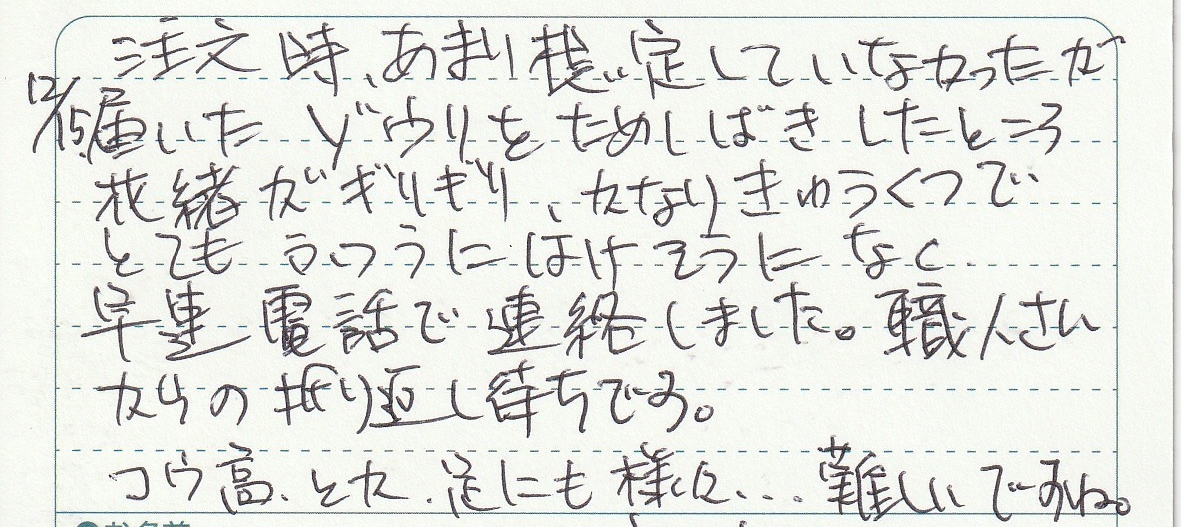 注文時、あまり想定していなかったが
12/15届いたゾウリをためしばきしたところ
花緒がぎりぎり、かなりきゅうくつで
とてもふつうにはけそうになく
早速電話で連絡しました。職人さん
からの折り返し待ちです。
コウ高、とか、足にも様々...難しいですね。